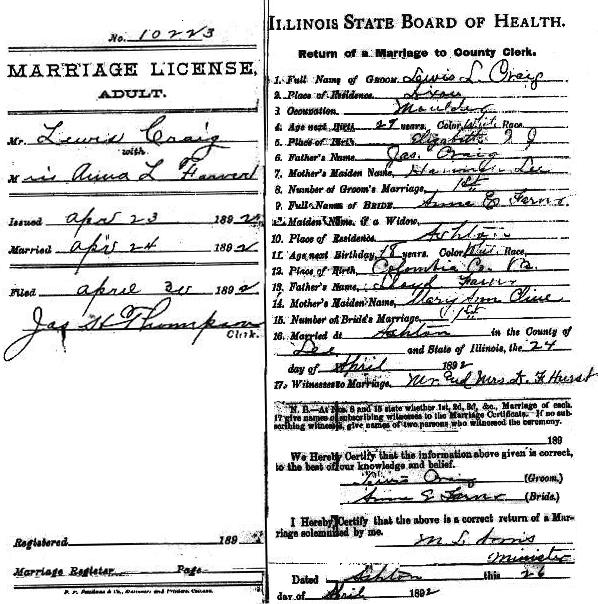 No. 10223
MARRIAGE LICENSE,
ADULT.
Mr. Lewis Craig
with
Miss Anna L
Issued April 23 1892
Married April 24 1892
Filed April 30 1892
Jas H Thompson
Clerk.
Registered 189
Marriage Register Page
ILLINOIS STATE BOARD OF HEALTH.
Return of a Marriage to County Clerk.
1. Full Name of GROOM, Lewis L. Craig
2. Place of Residence, Dixon
3. Occupation, Moulder
4. Age next Birth 27 years. Color Whit. Race
5. Place of Birth, Elizabeth N J
6. Father's Name, Jas. Craig
7. Mother's Maiden Name, Hannah Lee
8. Number of Groom's Marriage, 1st
9. Full Name of BRIDE, Anna E.
Maiden Name, if a Widow,
10. Place of Residence, Ashton
11. Age next Birthday, 18 years. Color Whi. Race,
12. Place of Birth, Colombia Co. Pa.
13. Father's Name, Lloyd
14. Mother's Maiden Name, Mary Ann Cline
15. Number of Bride's Marriage, 1st
16. Married at Ashton in the County of
Lee and State of Illinois, the 24
day of April 1892
17. Witnesses to Marriage, Mr and Mrs. D. F. Hurst
N. B.—At Nos. 8 and 15 state whether 1st, 2d, 3d, &c., Marriage of each.
17 give names of subscribing witnesses to the Marriage Certificate. If no sub-
scribing witnesses, give names of two persons who witnessed the ceremony.
189
We Hereby Certify that the information above given is correct,
to the best of our knowledge and belief.
Lewis Craig (Groom.)
Anna E (Bride.)
I Hereby Certify that the above is a correct return of a Mar-
riage solemnized by me.
M. L.
Minister
Dated Ashton this 26
day of April 1892